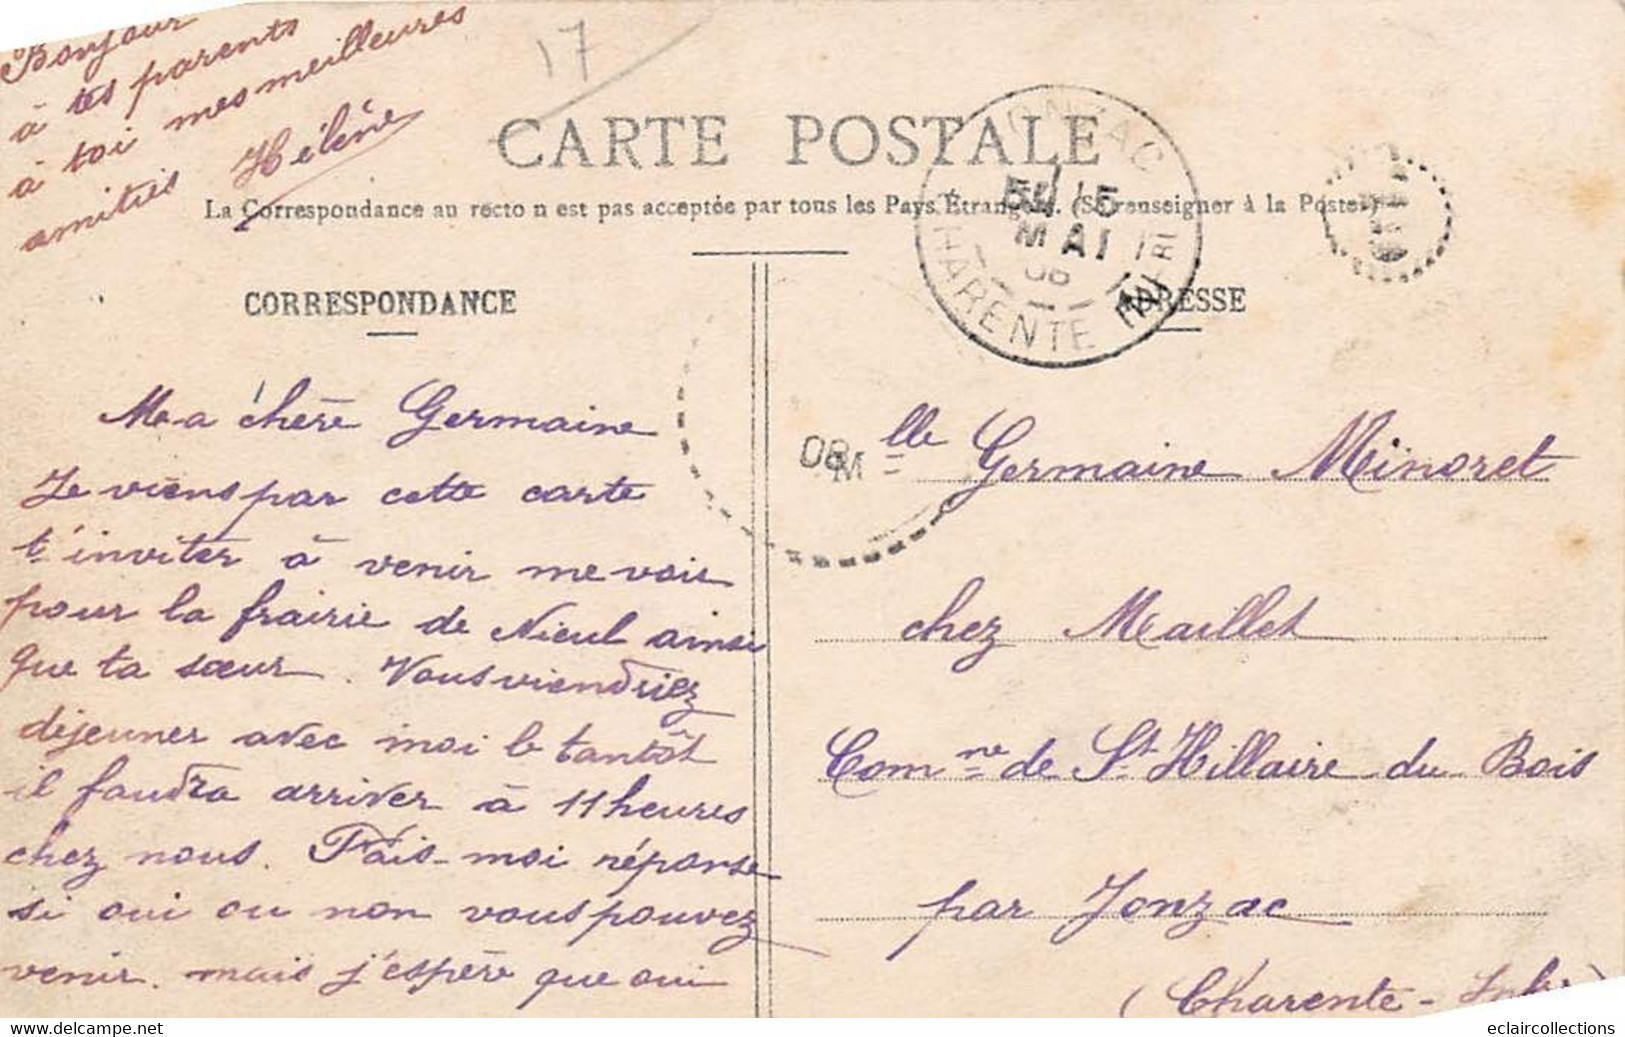 Bonjour
à tes parents
à toi mes meilleures
amitiés Hélène
17
CARTE POSTALE
La Correspondance au recto n est pas acceptée par tous les Pays Étrangers. (Se renseigner à la Poste.)
CORRESPONDANCE
ADRESSE
JONZAC
5
MAI
CHARENTE INFRE
Ma chère Germaine
Je viens par cette carte
t'inviter à venir me voir
pour la frairie de Nieul ainsi
que ta sœur. Vous viendriez
déjeuner avec moi le tantôt
il faudra arriver à 11 heures
chez nous. Fais-moi réponse
si oui ou non vous pouvez
venir. mais j'espère que oui
Mlle Germaine Minoret
chez Maillet
Comne de St Hillaire du Bois
par Jonzac
(Charente-Infre)
eclaircollections